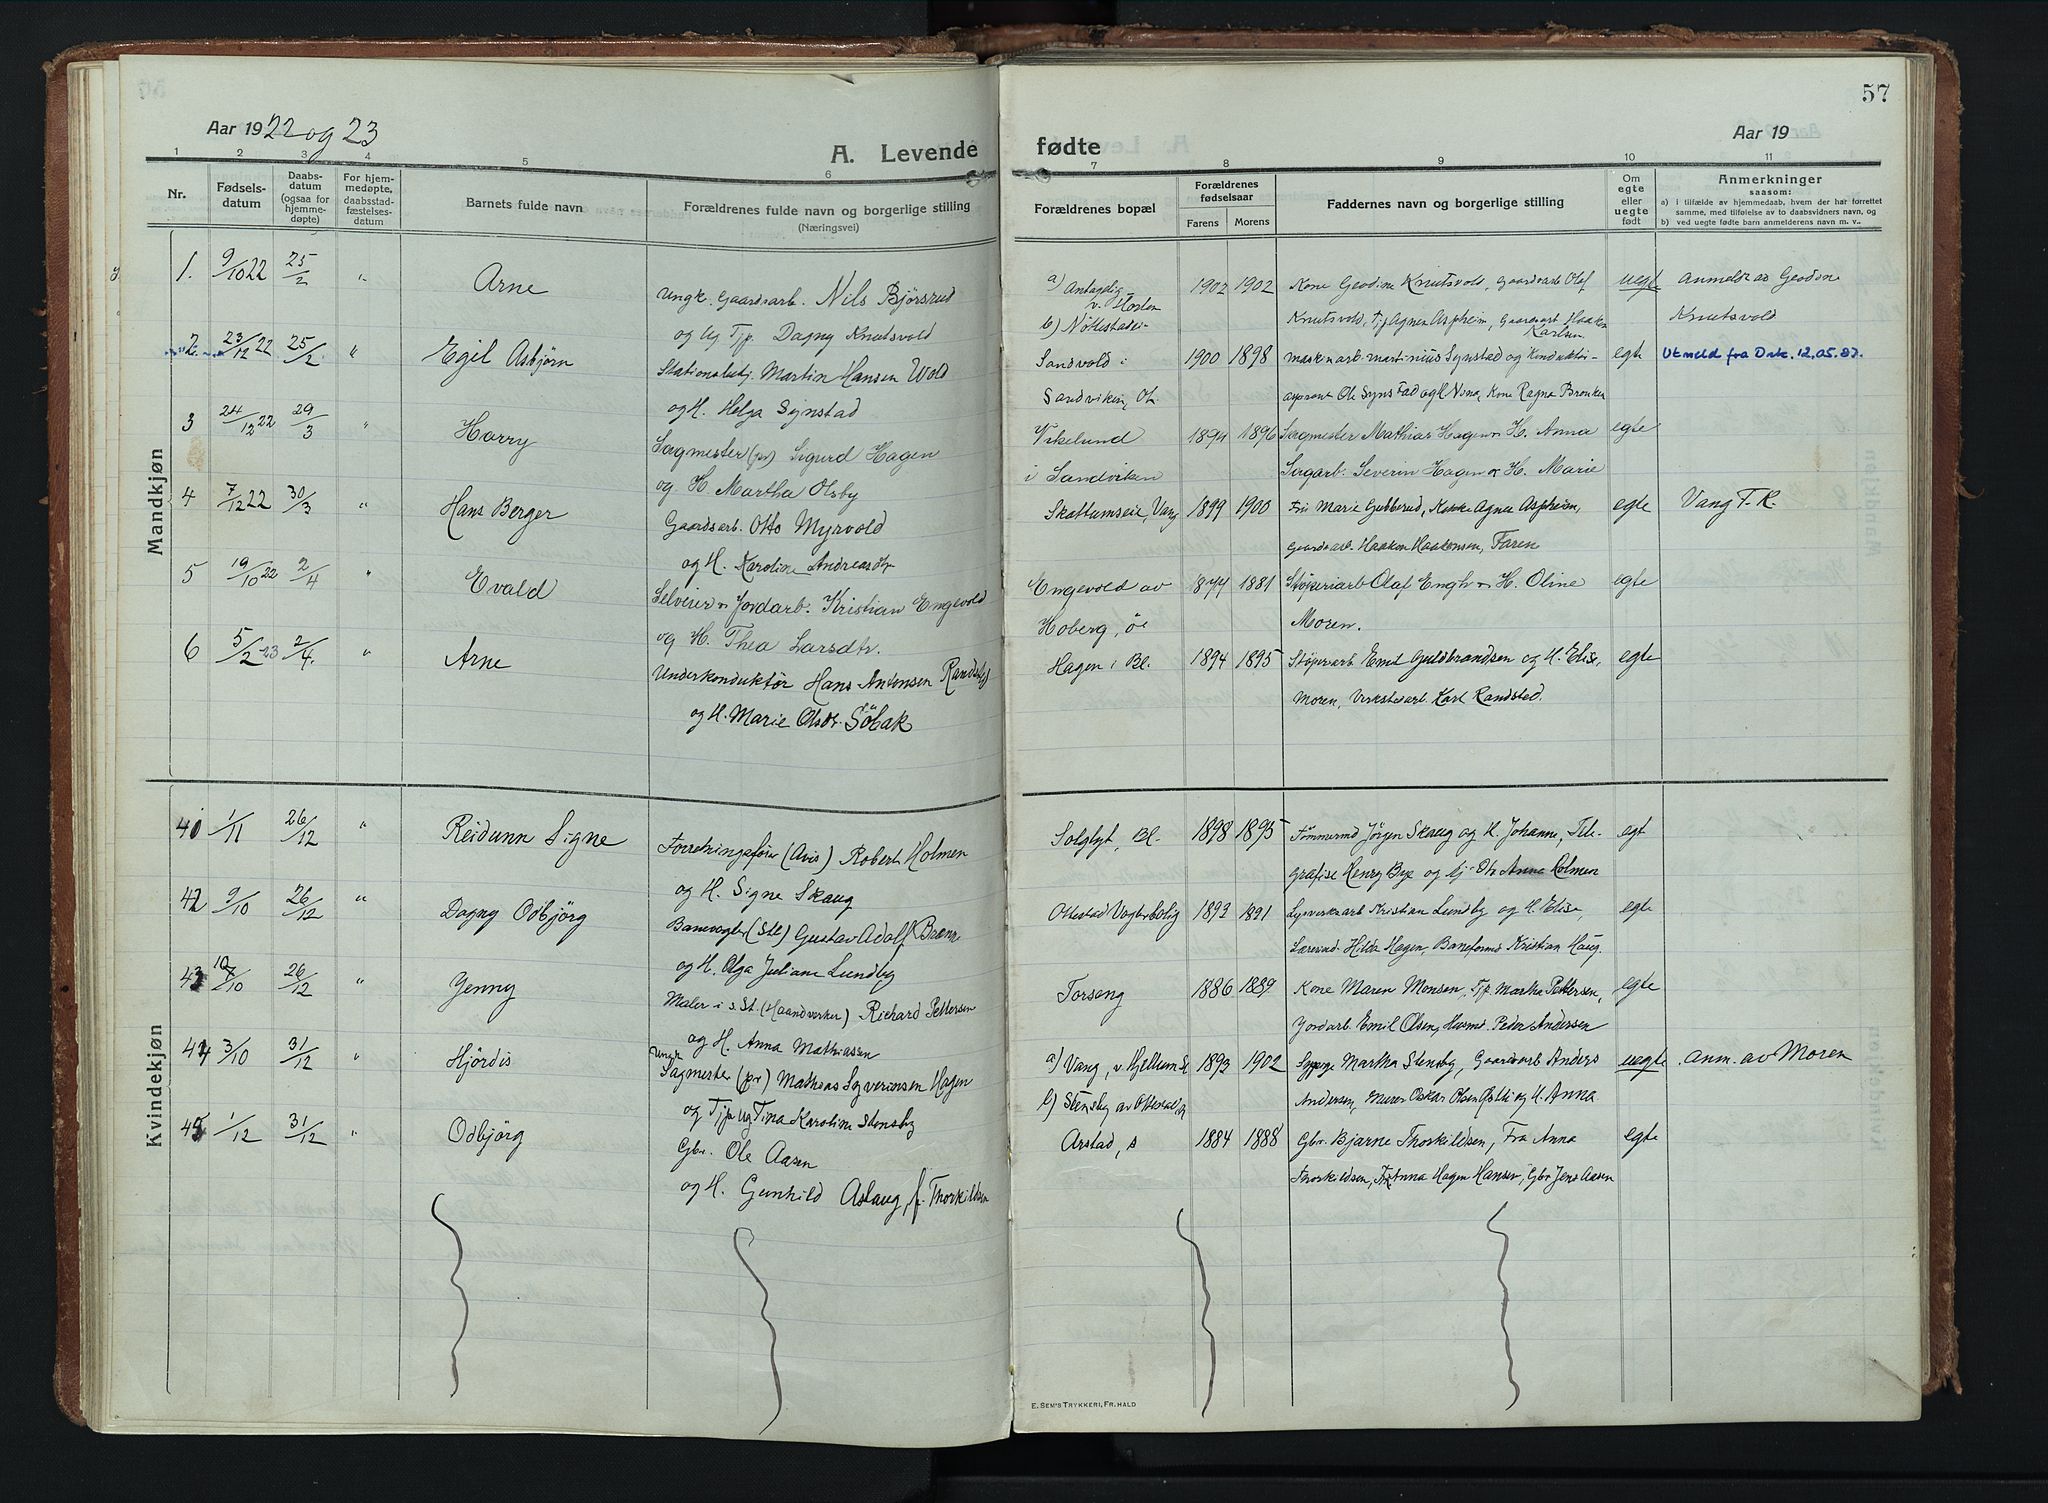 57
Aar 1922 og 23
A. Levende
fødte
Aar 19
1 2 3 4 5 6
7 8 9 10 11
Nr.
Fødsels-
datum
Daabs-
datum
(ogsaa for
hjemme-
døpte)
For hjem-
medøpte,
daabsstad-
fæstelses-
datum
Barnets fulde navn
Forældrenes fulde navn og borgerlige stilling
(Næringsvei)
Forældrenes bopæl
Forældrenes
fødselsaar
Farens Morens
Faddernes navn og borgerlige stilling
Om
egte
eller
uegte
født
Anmerkninger
saasom:
a) i tilfælde av hjemmedaab, hvem der har forrettet
samme, med tilføielse av to daabsvidners navn, og
b) ved uegte fødte barn anmelderens navn m. v..
Mandkjøn
1. 9/10 22 25/2 " Arne
Ungk. Gaardsarb. Nils Bjørsrud
og Ug. Tjp. Dagny Knutsvold
a) Antagelig
v. Stosten
b) Nøttestadei-
1902 1902
Kone Geodine Knutsvold, Gaardsarb Olaf
Knutsvold, Tjp Agnes Aspheim, Gaardsarb Haaken
Karlsen
uegt
Anmeldt av Geodine
Knutsvold
2 23/12 22 25/2 " Egil Asbjörn
Stationsbetj. Martin Hansen Wold
og H. Helga Synstad
Sandvold i
Sandviken, Ot.
1900 1898
Maskinarb. Martinius Synstad og Konduktør-
aspirant Ole Synstad og H. Nina, Kone Ragna Brenken
egte
Utmeld fra Dnk. 12.05.87.
3 24/12 22 29/3 " Harry
Sagmester (pr) Sigurd Hagen
og H. Martha Olsby
Vikelund
i Sandviken
1894 1896
Sagmester Mathias Hagen og H. Anna
Sagarb. Severin Hagen og H. Marie
egte
4 7/12 22 30/3 " Hans Berger
Gaardsarb. Otto Myrvold
og H. Karoline Andreasdtr
Skattumseie, Vang
1899 1900
Fri Marie Gulberud, Kokke Agnes Aspheim,
Gaardsarb. Haakon Haakensen, Faren
egte
Vang F. K.
5 19/10 22 2/4 " Evald
Selveier og Jordarb. Kristian Engevold
og H. Thea Larsdtr.
Engevold av
Hoberg, öe
1874 1881
Støperiarb Olaf Engh og H. Oline
Moren.
egte
6 5/2 23 2/4. " Arne
Underkonduktør Hans Andersen Randstad
og H. Marie Olsdtr. Söbak
Hagen i Bl.
1894 1895
Støperiarb Emil Guldbrandsen og H. Elise,
Moren, Verkstedarb. Karl Randstad.
egte
Kvindekjøn
41 1/11 26/12 " Reidunn Signe
Forretningsfører (Avis) Robert Holmen
og H. Signe Skaug
Solglyt, Bl.
1898 1895
Tømmermd Jørgen Skaug og H. Johanne, Tele-
grafise Henry Bye og Anna Holmen
egt
42 9/10 26/12 " Dagny Odbjörg
Banevogter (Stl) Gustav Adolf Brenn
og H. Olga Juliane Lundby
Ottestad Vogterbolig
1892 1891
Lysverksarb Kristian Lundby og H. Elise,
Lærerind. Hilda Hagen, Baneformd Kristian Haug.
egte
43 7/10 26/12 " Jenny
Maler i s. St. (Haandverker) Richard Pettersen
og H. Anna Mathiassen
Torseng
1886 1889
Kone Maren Monsen, Tjp. Martha Pettersen,
Jordarb. Emil Olsen, Husmd. Peder Andersen
egte
44 3/10 31/12 " Hjördis
Ungk
Sagmester (pr) Mathias Syverinsen Hagen
og Tjp. Ug Tina Karoline Stensby
a) Vang, v. Hjellum St
b) Stensby av Ottestad
1893 1902
Sypige Martha Stensby, Gaardsarb Anders
Andersen, Murer Oskar Olsen Østli og H. Anna
uegte
anm. av Moren
45 1/12 31/12 " Odbjörg
Gbr. Ole Aasen
og H. Gunhild Aslaug, f. Thorkildsen
Arstad, s
1884 1888
Gbr. Bjarne Thorkildsen, Fra Anna
Thorkildsen, Anna Hagen Hansen, Gbr Jens Aasen
egte
E. Sem's Trykkeri, Fr. Hald